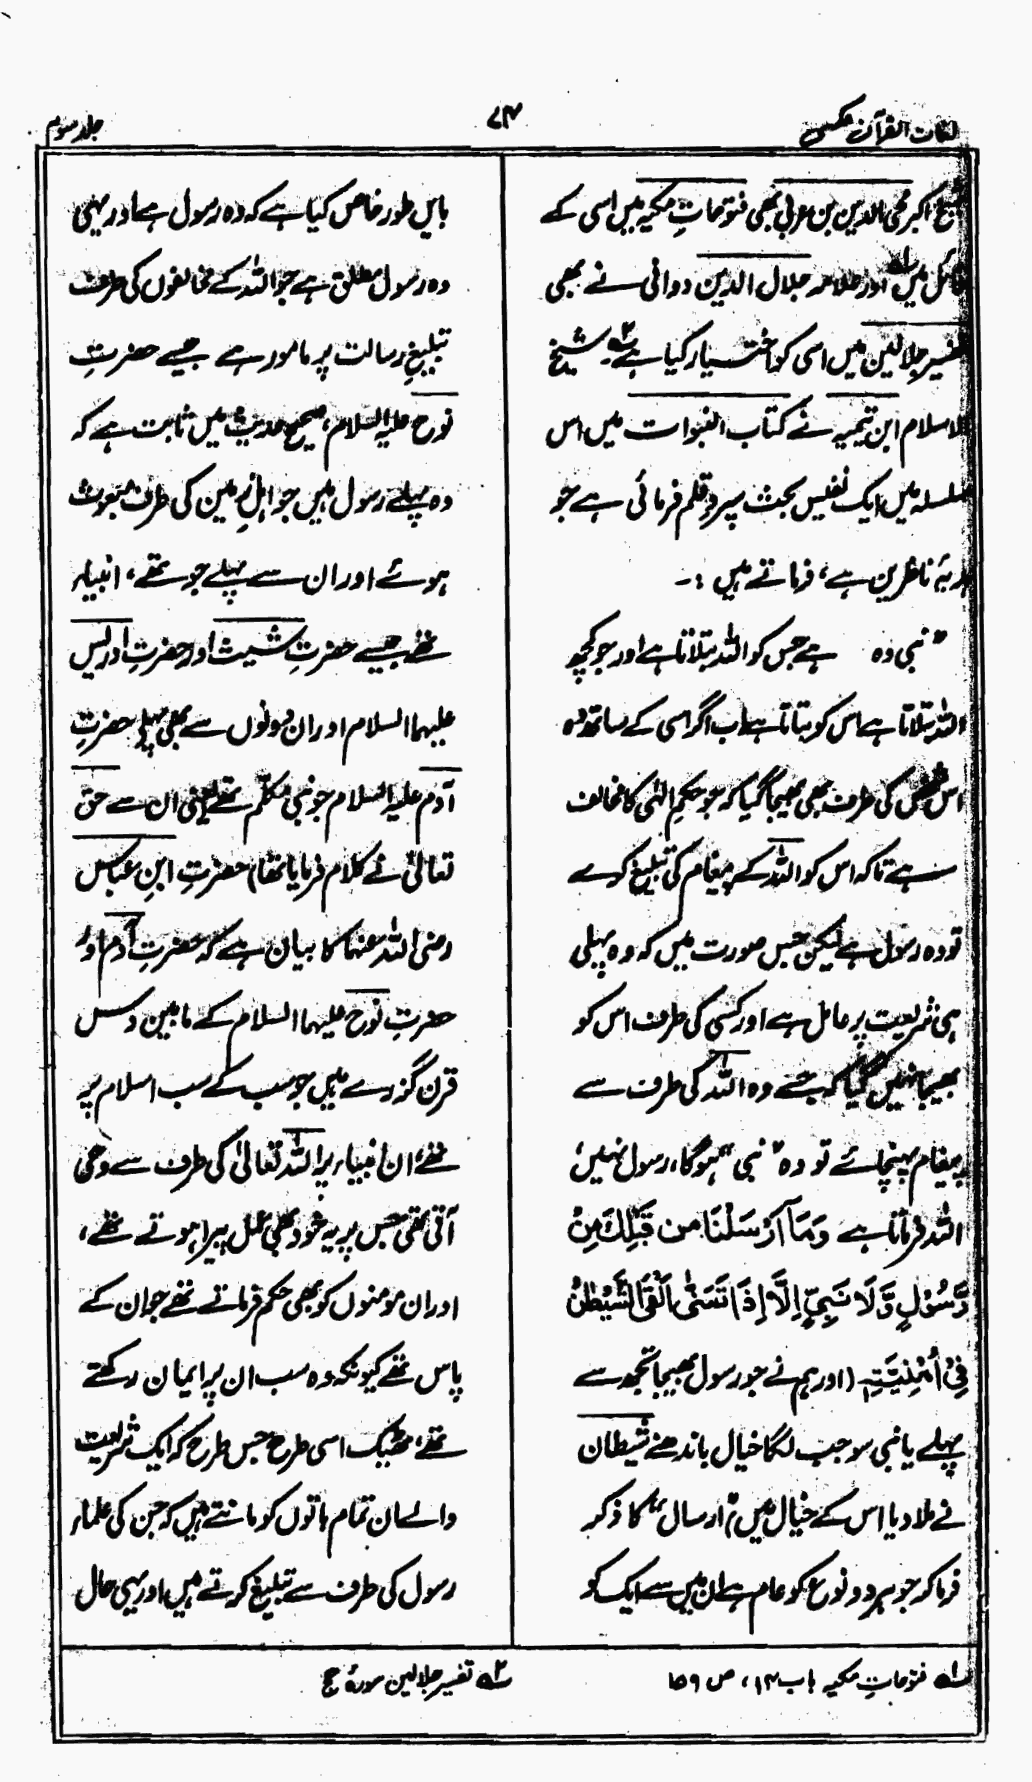 لغات القرآن عکسی
۷۴
جلد سوم
شیخ اکبر محی الدین بن عربی بھی فتوحاتِ مکیہ میں اسی کے
قائل ہیں ۱ے اور علامہ جلال الدین دوانی نے بھی
تفسیر جلالین میں اسی کو اختیار کیا ہے ۲ے۔ شیخ
الاسلام ابن تیمیہ نے کتاب النبوات میں اس
سلسلہ میں ایک نفیس بحث سپردِ قلم فرمائی ہے جو
ہدیۂ ناظرین ہے، فرماتے ہیں :۔
”نبی وہ ہے جس کو اللہ بتلاتا ہے اور جو کچھ
اللہ بتلاتا ہے اس کو بتاتا ہے اب اگر اسی کے ساتھ وہ
اس شخص کی طرف بھی بھیجا گیا کہ جو حکمِ الٰہی کا مخالف
ہے تاکہ اس کو اللہ کے پیغام کی تبلیغ کرے
تو وہ رسول ہے لیکن جس صورت میں کہ وہ پہلی
ہی شریعت پر عامل ہے اور کسی کی طرف اس کو
بھیجا نہیں گیا کہ جسے وہ اللہ کی طرف سے
پیغام پہنچائے تو وہ ”نبی“ ہوگا، رسول نہیں،
اللہ فرماتا ہے وَمَآ اَرْسَلْنَا مِن قَبْلِكَ مِنْ
رَّسُوْلٍ وَّلَا نَبِيٍّ اِلَّا اِذَا تَمَنّٰى اَلْقَى الشَّيْطٰنُ
فِيْٓ اُمْنِيَّتِهٖ (اور ہم نے جو رسول بھیجا تجھ سے
پہلے یا نبی سو جب لگا خیال باندھنے شیطان
نے ملا دیا اس کے خیال میں) ”ارسال“ کا ذکر
فرما کر جو ہر دو نوع کو عام ہے ان میں سے ایک کو
بایں طور خاص کیا ہے کہ وہ رسول ہے اور یہی
وہ رسول مطلق ہے جو اللہ کے مخالفوں کی طرف
تبلیغِ رسالت پر مامور ہے جیسے حضرتِ
نوح علیہ السلام، صحیح حدیث میں ثابت ہے کہ
وہ پہلے رسول ہیں جو اہلِ زمین کی طرف مبعوث
ہوئے اور ان سے پہلے جو تھے، انبیاء
تھے جیسے حضرتِ شیث اور حضرتِ ادریس
علیہما السلام اور ان دونوں سے بھی پہلے حضرتِ
آدم علیہ السلام جو نبی مکلّم تھے (یعنی ان سے حق
تعالیٰ نے کلام فرمایا تھا) حضرتِ ابنِ عباس
رضی اللہ عنہما کا بیان ہے کہ حضرتِ آدم اور
حضرتِ نوح علیہما السلام کے مابین دس
قرن گزرے ہیں جو سب کے سب اسلام پر
تھے، ان انبیاء پر اللہ تعالیٰ کی طرف سے وحی
آتی تھی جس پر یہ خود بھی عمل پیرا ہوتے تھے،
اور ان مومنوں کو بھی حکم فرماتے تھے جو ان کے
پاس تھے کیونکہ وہ سب ان پر ایمان رکھتے
تھے، ٹھیک اسی طرح جس طرح کہ ایک شریعت
والے ان تمام باتوں کو مانتے ہیں کہ جن کی علماء
رسول کی طرف سے تبلیغ کرتے ہیں، اور یہی حال
۱ے فتوحاتِ مکیہ باب ۱۴، ص ۱۵۹
۲ے تفسیر جلالین سورۂ حج